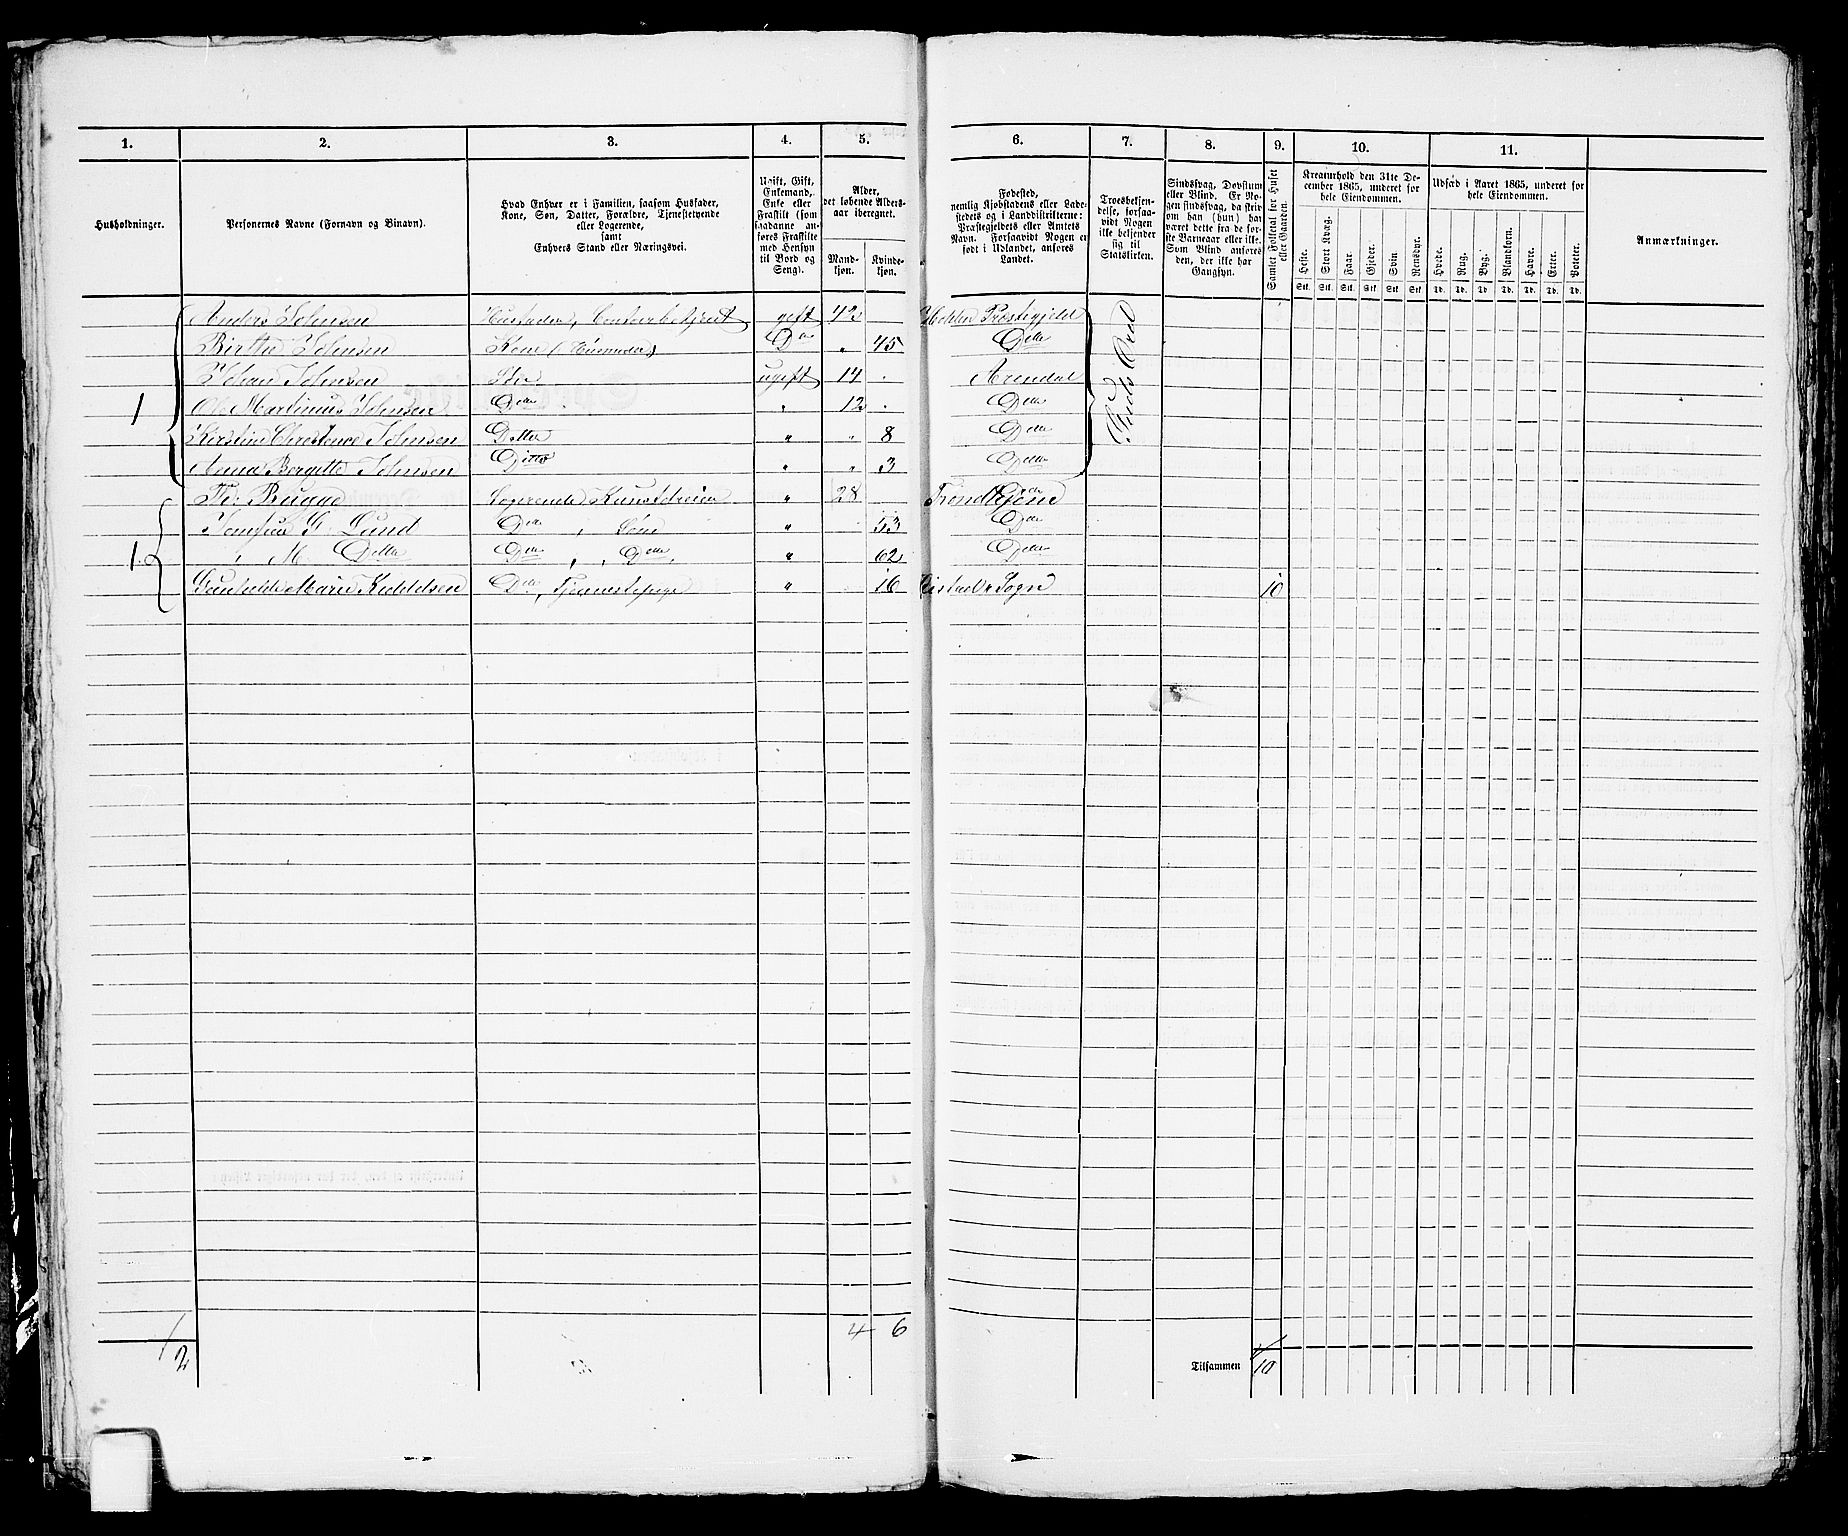 1. 2. 3. 4. 5. 6. 7. 8. 9. 10. 11.
Husholdninger.
Personernes Navne (Fornavn og Binavn).
Hvad Enhver er i Familien, saasom Husfader,
Kone, Søn, Datter, Forældre, Tjenestetyende
eller Logerende,
samt
Enhvers Stand eller Næringsvei.
Ugift, Gift,
Enkemand,
Enke eller
Fraskilt (som
saadanne an-
føres Fraskilte
med Hensyn
til Bord og
Seng).
Alder,
det løbende Alders-
aar iberegnet.
Mand-
kjøn.
Kvinde-
kjøn.
Fødested,
nemlig Kjøbstadens eller Lade-
stedets og i Landdistrikterne:
Præstegjeldets eller Amtets
Navn. Forsaavidt Nogen er
født i Udlandet, anføres
Landet.
Troesbekjen-
delse, forsaa-
vidt Nogen
ikke bekjender
sig til
Statskirken.
Sindssvag, Døvstum
eller Blind. Er No-
gen sindssvag, da skriv
om han (hun) har
været dette fra de før-
ste Barneaar eller ikke.
Som Blind anføres
den, der ikke har
Gangsyn.
Samlet Folketal for Huset
eller Gaarden.
Kreaturhold den 31te De-
cember 1865, underet for
hele Eiendommen.
Heste. Stort Kvæg. Faar. Gjeder. Svin. Rensdyr.
Stk. Stk. Stk. Stk. Stk. Stk.
Udsæd i Aaret 1865, underet for
hele Eiendommen.
Hvede. Rug. Byg. Blandkorn. Havre. Erter. Poteter.
Td. Td. Td. Td. Td. Td. Td.
Anmærkninger.
Anders Johnsen Husfader, gift 42 Præstegjeld
Birthe Johnsen Kone (Huusmoder) Do " 45 Ditto
Johan Johnsen Søn ugift 14 " Arendal
1 Ole Martinus Johnsen Ditto " 12 " Ditto
Kirstine Christence Johnsen Datter " " 8 Ditto
Anna Bergitte Johnsen Ditto " " 3 Ditto
Fr: Brugge Logerende " 28 Trondhjem
Jomfrue G. Lund Ditto, " 53 Ditto
1. " M. Ditto Ditto, Ditto, " 62 Ditto
Gunhilde Marie Knudsen Ditto, Tjenestepige " 16 Sogn 10
4 6
2
Tilsammen 10